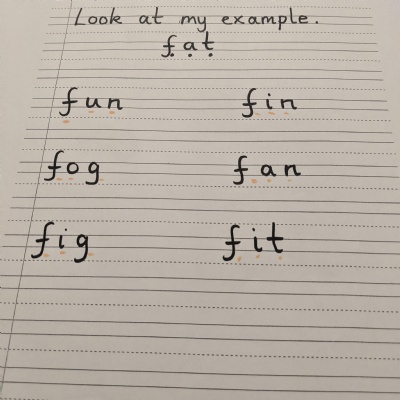 Look at my example.
fat
fun fin
fog fan
fig fit